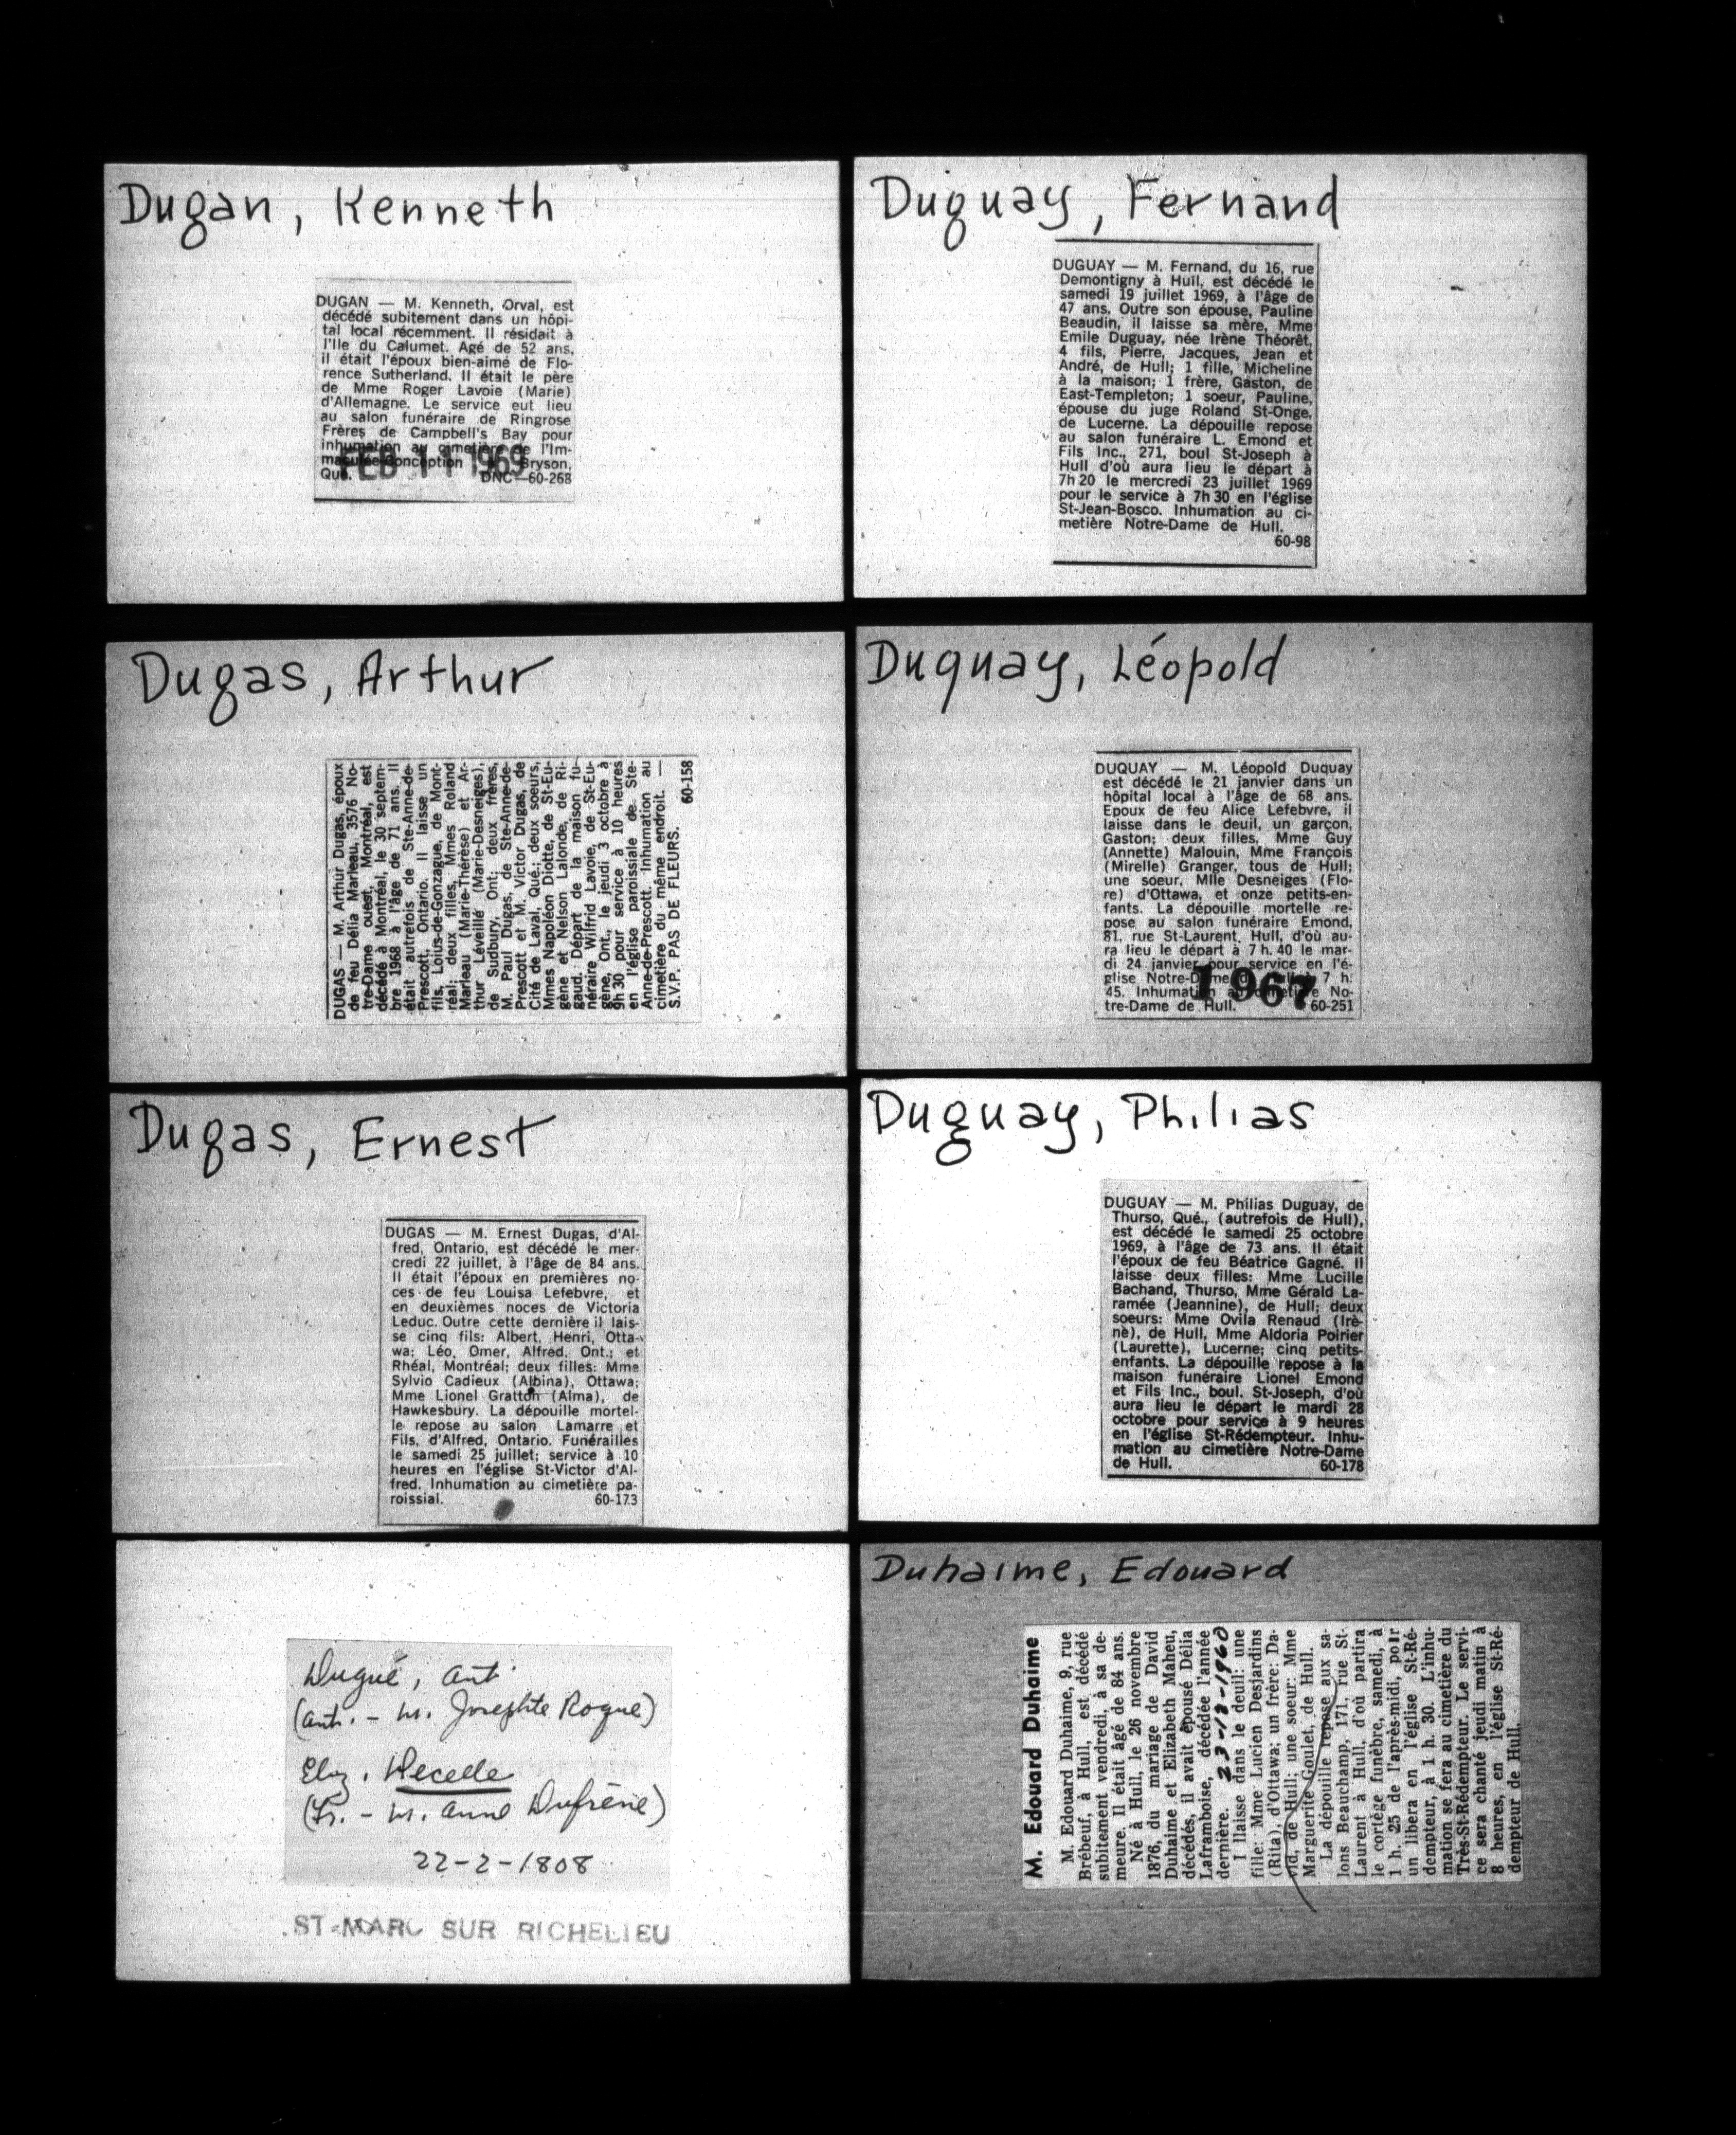 Dugan, Kenneth
DUGAN — M. Kenneth, Orval, est
décédé subitement dans un hôpi-
tal local récemment. Il résidait à
l'Ile du Calumet. Agé de 52 ans,
il était l'époux bien-aimé de Flo-
rence Sutherland. Il était le père
de Mme Roger Lavoie (Marie)
d'Allemagne. Le service eut lieu
au salon funéraire de Ringrose
Frères de Campbell's Bay pour
inhumation au cimetière de l'Im-
maculée-Conception Bryson,
Qué. DNC—60-268
FEB 11 1969
Dugas, Arthur
DUGAS — M. Arthur Dugas, époux
de feu Délia Marleau, 3576 No-
tre-Dame ouest, Montréal, est
décédé à Montréal, le 30 septem-
bre 1968 à l'âge de 71 ans. Il
était autrefois de Ste-Anne-de-
Prescott, Ontario. Il laisse un
fils, Loius-de-Gonzague, de Mont-
réal; deux filles, Mmes Roland
Marleau (Marie-Thérèse) et Ar-
thur Léveillé (Marie-Desneiges),
de Sudbury, Ont; deux frères,
M. Paul Dugas, de Ste-Anne-de-
Prescott et M. Victor Dugas, de
Cité de Laval, Qué.; deux soeurs,
Mmes Napoléon Diotte, de St-Eu-
gène et Nelson Lalonde, de Ri-
gaud. Départ de la maison fu-
néraire Wilfrid Lavoie, de St-Eu-
gène, Ont., le jeudi 3 octobre à
9h 30 pour service à 10 heures
en l'église paroissiale de Ste-
Anne-de-Prescott. Inhumation au
cimetière du même endroit. —
S.V.P. PAS DE FLEURS.
60-158
Dugas, Ernest
DUGAS — M. Ernest Dugas, d'Al-
fred, Ontario, est décédé le mer-
credi 22 juillet, à l'âge de 84 ans.
Il était l'époux en premières no-
ces de feu Louisa Lefebvre, et
en deuxièmes noces de Victoria
Leduc. Outre cette dernière il lais-
se cinq fils: Albert, Henri, Otta-
wa; Léo, Omer, Alfred, Ont.; et
Rhéal, Montréal; deux filles: Mme
Sylvio Cadieux (Albina), Ottawa;
Mme Lionel Gratton (Alma), de
Hawkesbury. La dépouille mortel-
le repose au salon Lamarre et
Fils, d'Alfred, Ontario. Funérailles
le samedi 25 juillet; service à 10
heures en l'église St-Victor d'Al-
fred. Inhumation au cimetière pa-
roissial. 60-173
Dugué, Ant
(Ant. - m. Josephte Rogue)
Eliz. Decelle
(Fr. - m. Anne Dufrêne)
22-2-1808
ST-MARC SUR RICHELIEU
Duguay, Fernand
DUGUAY — M. Fernand, du 16, rue
Demontigny à Hull, est décédé le
samedi 19 juillet 1969, à l'âge de
47 ans. Outre son épouse, Pauline
Beaudin, il laisse sa mère, Mme
Emile Duguay, née Irène Théorêt,
4 fils, Pierre, Jacques, Jean et
André, de Hull; 1 fille, Micheline
à la maison; 1 frère, Gaston, de
East-Templeton; 1 soeur, Pauline,
épouse du juge Roland St-Onge,
de Lucerne. La dépouille repose
au salon funéraire L. Emond et
Fils Inc., 271, boul St-Joseph à
Hull d'où aura lieu le départ à
7h 20 le mercredi 23 juillet 1969
pour le service à 7h 30 en l'église
St-Jean-Bosco. Inhumation au ci-
metière Notre-Dame de Hull.
60-98
Duquay, Léopold
DUQUAY — M. Léopold Duquay
est décédé le 21 janvier dans un
hôpital local à l'âge de 68 ans.
Epoux de feu Alice Lefebvre, il
laisse dans le deuil, un garçon,
Gaston; deux filles, Mme Guy
(Annette) Malouin, Mme François
(Mirelle) Granger, tous de Hull;
une soeur, Mlle Desneiges (Flo-
re) d'Ottawa, et onze petits-en-
fants. La dépouille mortelle re-
pose au salon funéraire Emond,
81, rue St-Laurent, Hull, d'où au-
ra lieu le départ à 7 h. 40 le mar-
di 24 janvier pour service en l'é-
glise Notre-Dame 7 h:
45. Inhumation au cimetière No-
tre-Dame de Hull. 60-251
1967
Duguay, Philias
DUGUAY — M. Philias Duguay, de
Thurso, Qué., (autrefois de Hull),
est décédé le samedi 25 octobre
1969, à l'âge de 73 ans. Il était
l'époux de feu Béatrice Gagné. Il
laisse deux filles: Mme Lucille
Bachand, Thurso, Mme Gérald La-
ramée (Jeannine), de Hull; deux
soeurs: Mme Ovila Renaud (Irè-
ne), de Hull, Mme Aldoria Poirier
(Laurette), Lucerne; cinq petits-
enfants. La dépouille repose à la
maison funéraire Lionel Emond
et Fils Inc., boul. St-Joseph, d'où
aura lieu le départ le mardi 28
octobre pour service à 9 heures
en l'église St-Rédempteur. Inhu-
mation au cimetière Notre-Dame
de Hull. 60-178
Duhaime, Edouard
M. Edouard Duhaime
M. Edouard Duhaime, 9, rue
Brébeuf, à Hull, est décédé
subitement vendredi, à sa de-
meure. Il était âgé de 84 ans.
Né à Hull, le 26 novembre
1876, du mariage de David
Duhaime et Elizabeth Maheu,
décédés, il avait épousé Délia
Laframboise, décédée l'année
dernière. 23-12-1960
I llaisse dans le deuil: une
fille: Mme Lucien Desjardins
(Rita), d'Ottawa; un frère: Da-
vid, de Hull; une soeur: Mme
Marguerite Goulet, de Hull.
La dépouille repose aux sa-
lons Beauchamp, 171, rue St-
Laurent à Hull, d'où partira
le cortège funèbre, samedi, à
1 h. 25 de l'après-midi, pour
un libera en l'église St-Ré-
dempteur, à 1 h. 30. L'inhu-
mation se fera au cimetière du
Très-St-Rédempteur. Le servi-
ce sera chanté jeudi matin à
8 heures, en l'église St-Ré-
dempteur de Hull.